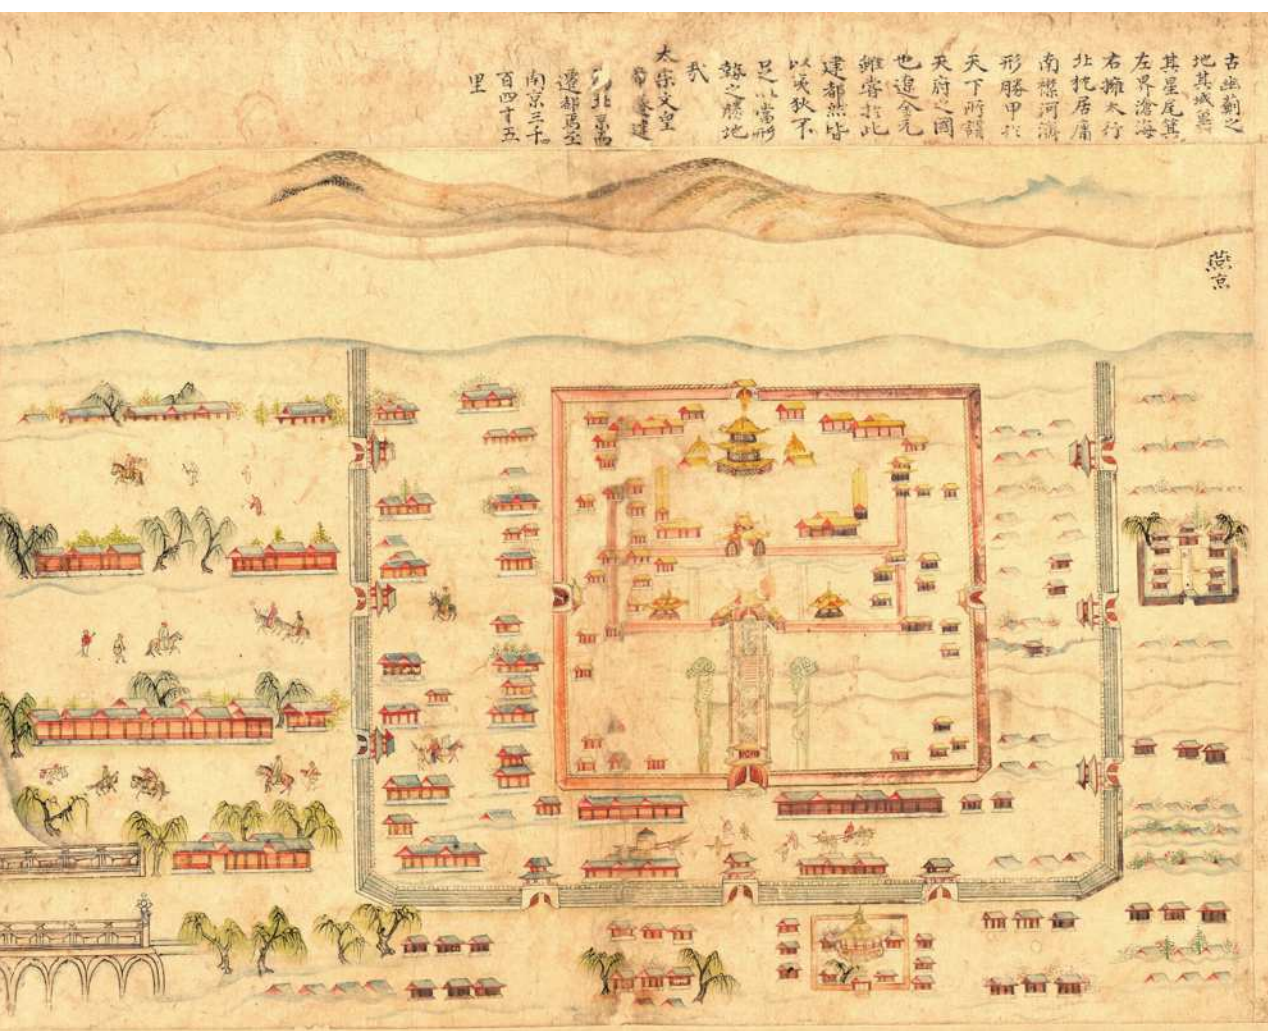 古幽薊之
地其城
其星尾箕
左界滄海
右擁太行
北枕居庸
南襟河濟
形勝甲於
天下所謂
天府之國
也遼金元
雖嘗於此
建都然皆
以夷狄不
足以當形
勢之勝地
哉
太宗文皇
帝建
北京為
遷都焉至
南京三千
百四十五
里
燕京